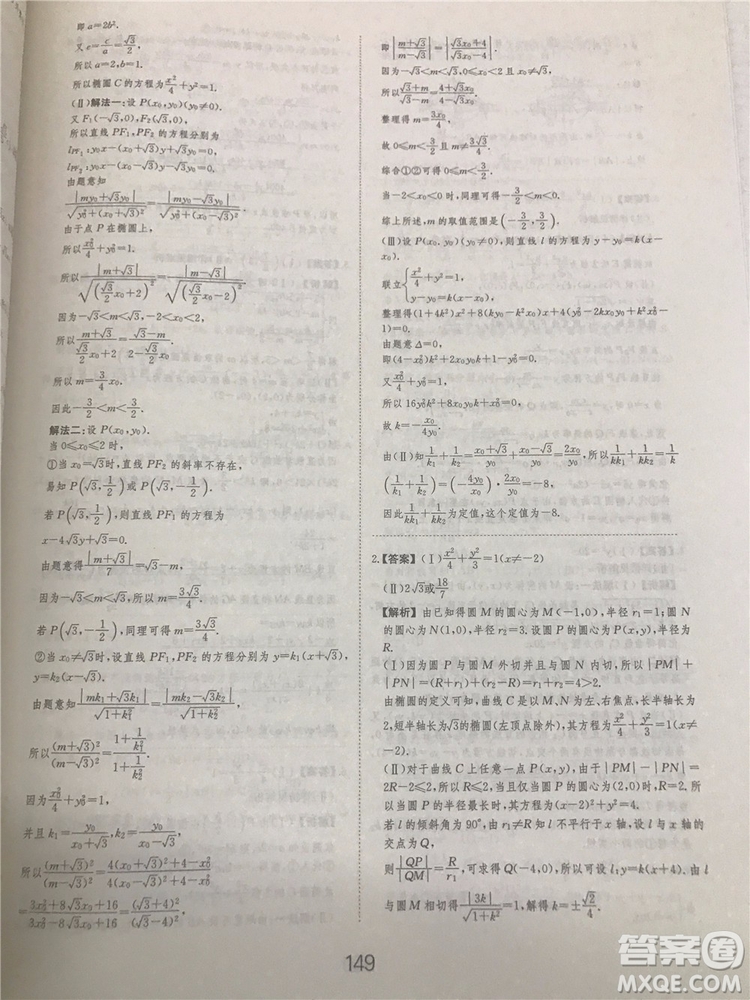 即 a=2b².
又 e=c/a=√3/2,
所以 a=2,b=1.
所以椭圆 C 的方程为 x²/4+y²=1.
(Ⅱ)解法一:设 P(x₀,y₀)(y₀≠0).
又 F₁(-√3,0),F₂(√3,0),
所以直线 PF₁,PF₂ 的方程分别为
l_PF₁:y₀x-(x₀+√3)y+√3y₀=0,
l_PF₂:y₀x-(x₀-√3)y-√3y₀=0.
由题意知
|my₀+√3y₀|/√(y₀²+(x₀+√3)²)=|my₀-√3y₀|/√(y₀²+(x₀-√3)²).
由于点 P 在椭圆上,
所以 x₀²/4+y₀²=1.
所以 |m+√3|/√((√3/2 x₀+2)²)=|m-√3|/√((√3/2 x₀-2)²).
因为-√3<m<√3,-2<x₀<2,
所以 (m+√3)/(√3/2 x₀+2)=(√3-m)/(2-√3/2 x₀).
所以 m=3/4 x₀.
因此-3/2<m<3/2.
解法二:设 P(x₀,y₀).
当 0≤x₀≤2 时,
①当 x₀=√3时,直线 PF₂ 的斜率不存在,
易知 P(√3,1/2)或 P(√3,-1/2).
若 P(√3,1/2),则直线 PF₁ 的方程为
x-4√3y+√3=0.
由题意得 |m+√3|/7=√3-m,
因为-√3<m<√3,所以 m=3√3/4.
若 P(√3,-1/2),同理可得 m=3√3/4.
②当 x₀≠√3时,设直线 PF₁,PF₂ 的方程分别为 y=k₁(x+√3),
y=k₂(x-√3).
由题意知 |mk₁+√3k₁|/√(1+k₁²)=|mk₂-√3k₂|/√(1+k₂²),
所以 (m+√3)²/(m-√3)²=(1+1/k₁²)/(1+1/k₂²).
因为 x₀²/4+y₀²=1,
并且 k₁=y₀/(x₀+√3),k₂=y₀/(x₀-√3),
所以 (m+√3)²/(m-√3)²=(4(x₀+√3)²+4-x₀²)/(4(x₀-√3)²+4-x₀²)
=(3x₀²+8√3x₀+16)/(3x₀²-8√3x₀+16)=(√3x₀+4)²/(√3x₀-4)²,
即|(m+√3)/(m-√3)|=|(√3x₀+4)/(√3x₀-4)|.
因为-√3<m<√3,0≤x₀<2 且 x₀≠√3,
所以 (√3+m)/(√3-m)=(4+√3x₀)/(4-√3x₀).
整理得 m=3x₀/4,
故 0≤m<3/2 且 m≠3√3/4.
综合①②可得 0≤m<3/2.
当-2<x₀<0 时,同理可得-3/2<m<0.
综上所述,m 的取值范围是(-3/2,3/2).
(Ⅲ)设 P(x₀,y₀)(y₀≠0),则直线 l 的方程为 y-y₀=k(x-
x₀).
联立{x²/4+y²=1, y-y₀=k(x-x₀),
整理得(1+4k²)x²+8(ky₀-k²x₀)x+4(y₀²-2kx₀y₀+k²x₀²
-1)=0.
由题意 Δ=0,
即(4-x₀²)k²+2x₀y₀k+1-y₀²=0.
又 x₀²/4+y₀²=1,
所以 16y₀²k²+8x₀y₀k+x₀²=0.
故 k=-x₀/4y₀.
由(Ⅱ)知 1/k₁+1/k₂=(x₀+√3)/y₀+(x₀-√3)/y₀=2x₀/y₀,所以 1/kk₁+1/kk₂=1/k
(1/k₁+1/k₂)=(-4y₀/x₀)·2x₀/y₀=-8,
因此 1/kk₁+1/kk₂ 为定值,这个定值为-8.
2.【答案】(Ⅰ)x²/4+y²/3=1(x≠-2)
(Ⅱ)2√3或18/7
【解析】由已知得圆 M 的圆心为 M(-1,0),半径 r₁=1;圆 N
的圆心为 N(1,0),半径 r₂=3.设圆 P 的圆心为 P(x,y),半径为
R.
(Ⅰ)因为圆 P 与圆 M 外切并且与圆 N 内切,所以|PM|+
|PN|=(R+r₁)+(r₂-R)=r₁+r₂=4>2.
由椭圆的定义可知,曲线 C 是以 M、N 为左、右焦点,长半轴长为
2,短半轴长为√3的椭圆(左顶点除外),其方程为 x²/4+y²/3=1(x≠
-2).
(Ⅱ)对于曲线 C 上任意一点 P(x,y),由于|PM|-|PN|=
2R-2≤2,所以 R≤2,当且仅当圆 P 的圆心为(2,0)时,R=2.
所以当圆 P 的半径最长时,其方程为(x-2)²+y²=4.
若 l 的倾斜角为 90°,由 r₁≠R 知 l 不平行于 x 轴,设 l 与 x 轴的
交点为 Q,
则|QP|/|QM|=R/r₁,可求得 Q(-4,0),所以可设 l:y=k(x+4).由 l
与圆 M 相切得 |3k|/√(1+k²)=1,解得 k=±√2/4.
149
答案圈
MXQE.COM